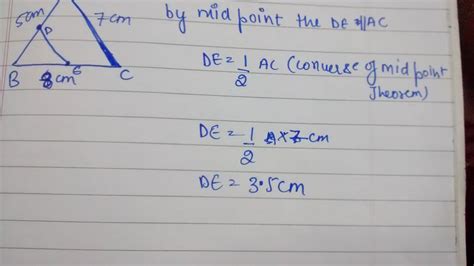 by mid point the DE ∥ AC
5cm
D
7cm
B
8cm
E
C
DE = 1/2 AC (converse of mid point
Theorem)
DE = 1/2 × 7 cm
DE = 3.5cm